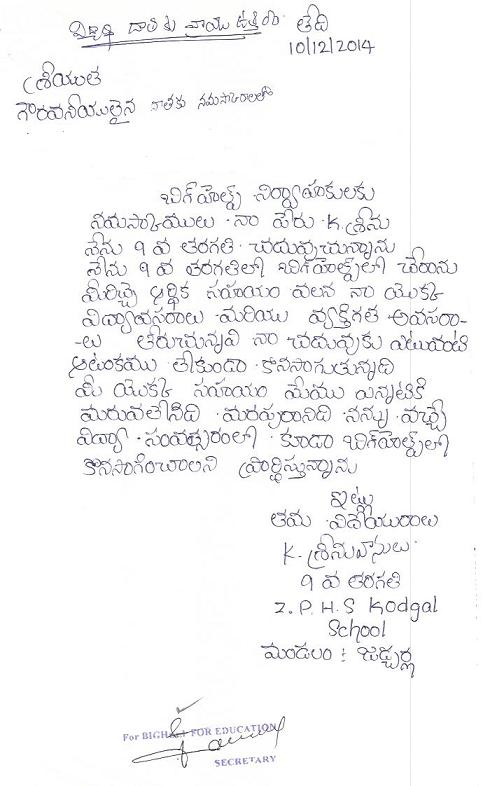 విద్యార్థి దాతకు వ్రాయు ఉత్తరం తేది
10/12/2014
శ్రీయుత
గౌరవనీయులైన దాతకు నమస్కారాలతో
బిగ్‌హెల్ప్ నిర్వాహకులకు
నమస్కారములు నా పేరు K. శ్రీను
నేను 9 వ తరగతి చదువుచున్నాను
నేను 9 వ తరగతిలో బిగ్‌హెల్ప్‌లో చేరాను
మీరిచ్చే ఆర్థిక సహాయం వలన నా యొక్క
విద్యావసరాలు మరియు వ్యక్తిగత అవసరా-
-లు తీరుచున్నవి నా చదువుకు ఎటువంటి
ఆటంకము లేకుండా కొనసాగుతున్నది
మీ యొక్క సహాయం మేము ఎన్నటికి
మరువలేనిది మరపురానిది నన్ను వచ్చే
విద్యా సంవత్సరంలో కూడా బిగ్‌హెల్ప్‌లో
కొనసాగించాలని ప్రార్థిస్తున్నాను
ఇట్లు
తమ విదేయురాలు
K. శ్రీనువాసులు
9 వ తరగతి
Z.P.H.S Kodgal
School
మండలం : జడ్చర్ల
For BIGHELP FOR EDUCATION
SECRETARY